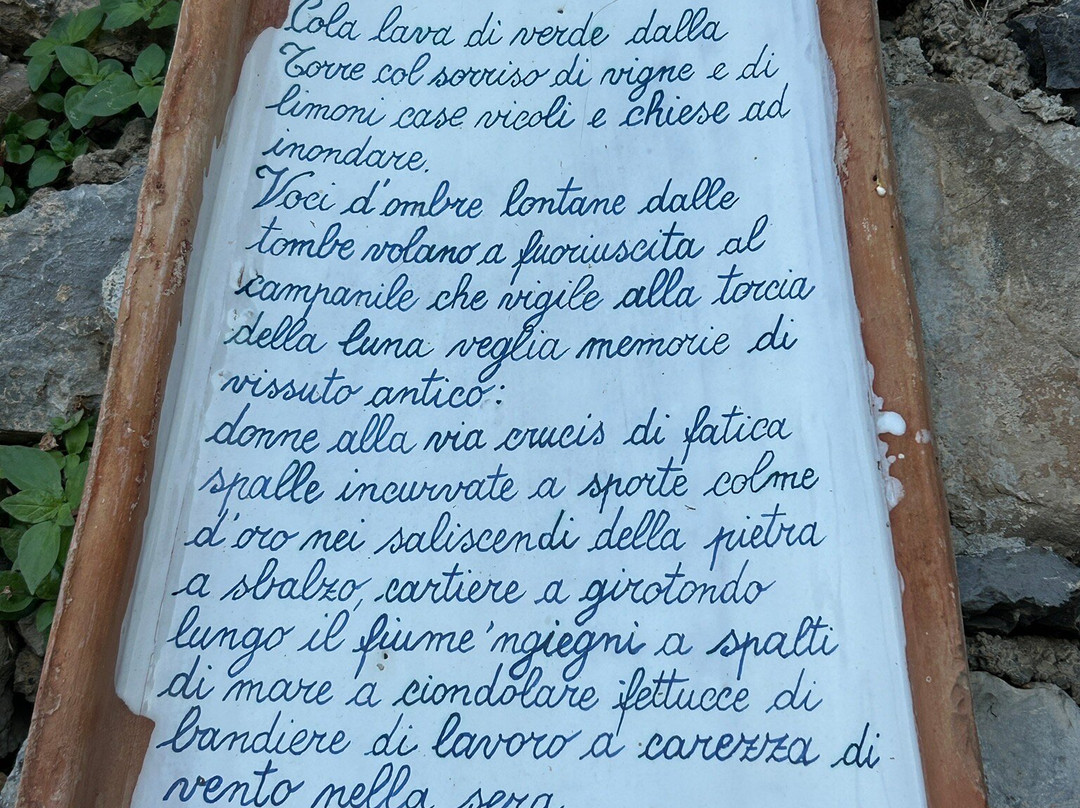 Cola lava di verde dalla
Torre col sorriso di vigne e di
limoni case vicoli e chiese ad
inondare.
Voci d'ombre lontane dalle
tombe volano a fuoriuscita al
campanile che vigile alla torcia
della luna veglia memorie di
vissuto antico:
donne alla via crucis di fatica
spalle incurvate a sporte colme
d'oro nei saliscendi della pietra
a sbalzo, cartiere a girotondo
lungo il fiume 'ngiegni a spalti
di mare a ciondolare fettucce di
bandiere di lavoro a carezza di
vento nella sera